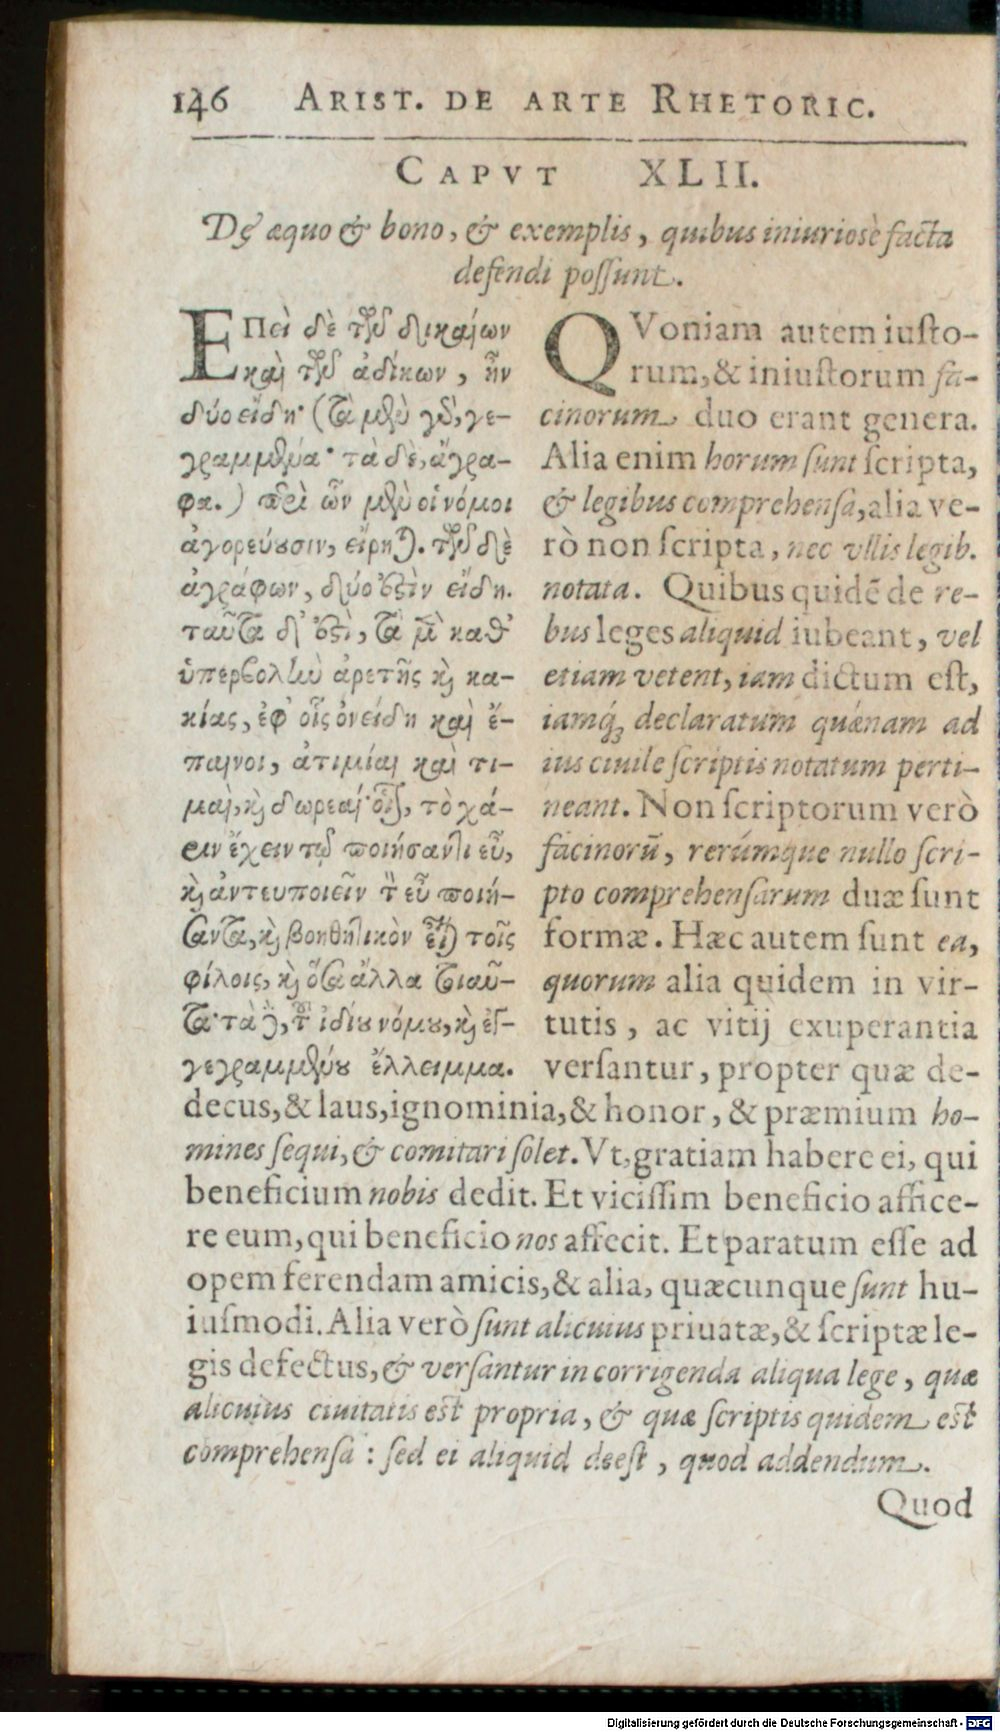 146 ARIST. DE ARTE RHETORIC.
CAPVT XLII.
De æquo & bono, & exemplis, quibus iniuriosè facta
defendi possunt.
ΕΠεὶ δὲ τῶν δικαίων
καὶ τῶν ἀδίκων, ἦν
δύο εἴδη· (τὰ μὲν γὸ, γε-
γραμμένα· τὰ δὲ, ἄγρα-
φα.) περὶ ὧν μὲν οἱ νόμοι
ἀγορεύουσιν, εἴρηται. τῶν δὲ
ἀγράφων, δύο ἐστὶν εἴδη.
ταῦτα δ' ἐστὶ, τὰ μ̄ καθ'
ὑπερβολὴν ἀρετῆς κὶ κα-
κίας, ἐφ' οἷς ὀνείδη καὶ ἔ-
παινοι, ἀτιμίαι καὶ τι-
μαὶ, κὶ δωρεαί· οἷον, τὸ χά-
ριν ἔχειν τῷ ποιήσαντι εὖ,
κὶ ἀντευποιεῖν τ̀ εὖ ποιή-
σαντα, κὶ βοηθητικὸν εἶναι τοῖς
φίλοις, κὶ ὅσα ἄλλα τοιαῦ-
τα· τὰ δὲ, τοῦ ἰδίου νόμου, κὶ ἐγ-
γεγραμμένου ἔλλειμμα.
QVoniam autem iusto-
rum, & iniustorum fa-
cinorum duo erant genera.
Alia enim horum sunt scripta,
& legibus comprehensa, alia ve-
rò non scripta, nec vllis legib.
notata. Quibus quidē de re-
bus leges aliquid iubeant, vel
etiam vetent, iam dictum est,
iamq́; declaratum quænam ad
ius ciuile scriptis notatum perti-
neant. Non scriptorum verò
facinorū, rerúmque nullo scri-
pto comprehensarum duæ sunt
formæ. Hæc autem sunt ea,
quorum alia quidem in vir-
tutis, ac vitij exuperantia
versantur, propter quæ de-
decus, & laus, ignominia, & honor, & præmium ho-
mines sequi, & comitari solet. Vt, gratiam habere ei, qui
beneficium nobis dedit. Et vicissim beneficio affice-
re eum, qui beneficio nos affecit. Et paratum esse ad
opem ferendam amicis, & alia, quæcunque sunt hu-
iusmodi. Alia verò sunt alicuius priuatæ, & scriptæ le-
gis defectus, & versantur in corrigenda aliqua lege, quæ
alicuius ciuitatis est propria, & quæ scriptis quidem est
comprehensa : sed ei aliquid deest, quod addendum.
Quod
Digitalisierung gefördert durch die Deutsche Forschungsgemeinschaft - DFG